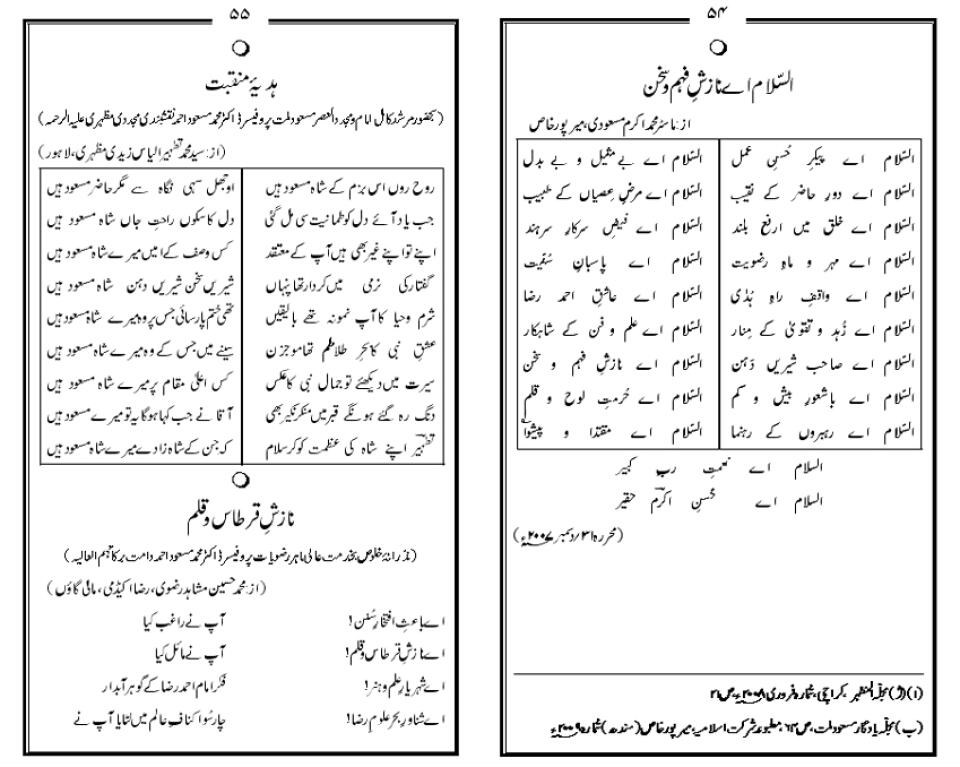 ۵۴
السّلام اے نازشِ فہم و سخن
از: ماسٹر محمد اکرم مسعودی، میر پور خاص
السّلام اے پیکرِ حُسنِ عمل السّلام اے بے مثیل و بے بدل
السّلام اے دورِ حاضر کے نقیب السّلام اے مرضِ عصیاں کے طبیب
السّلام اے خلق میں ارفع بلند السّلام اے فیضِ سرکارِ سرہند
السّلام اے مہر و ماہِ رضویت السّلام اے پاسبانِ سُنّیت
السّلام اے واقفِ راہِ ہُدٰی السّلام اے عاشقِ احمد رضا
السّلام اے زُہد و تقویٰ کے مِنار السّلام اے علم و فن کے شاہکار
السّلام اے صاحب شیریں دَہن السّلام اے نازشِ فہم و سخن
السّلام اے باشعورِ بیش و کم السّلام اے حُرمتِ لوح و قلم
السّلام اے رہبروں کے رہنما السّلام اے مقتدا و پیشوا
السلام اے نعمتِ رب کبیر
السلام اے محسنِ اکرم حقیر
(محررہ ۳۱؍دسمبر ۲۰۰۷ء)
(۱)(ل) مجلّہ المظہر، کراچی، شمارہ فروری ۲۰۰۸ء، ص ۲۱
(ب) مجلّہ یادگار مسعود ملت، ص ۶۳، مطبوعہ شرکت اسلامیہ، میر پور خاص (سندھ) شمارہ ۲۰۰۹ء
۵۵
ہدیۂ منقبت
(بحضور مرشد کامل امام و مجدد العصر مسعود ملت پروفیسر ڈاکٹر محمد مسعود احمد نقشبندی مجددی مظہری علیہ الرحمہ)
(از: سید محمد تطہیر الیاس زیدی مظہری، لاہور)
روح رواں اس بزم کے شاہ مسعود ہیں اوجھل سہی نگاہ سے مگر حاضر مسعود ہیں
جب یاد آئے دل کو طمانیت سی مل گئی دل کا سکوں راحتِ جاں شاہ مسعود ہیں
اپنے تو اپنے غیر بھی ہیں آپ کے معتقد کس وصف کے امیں میرے شاہ مسعود ہیں
گفتار کی نرمی میں کردار تھا پنہاں شیریں سخن شیریں دہن شاہ مسعود ہیں
شرم و حیا کا آپ نمونہ تھے بالیقیں تھی ختم پارسائی جس پر وہ میرے شاہ مسعود ہیں
عشقِ نبی کا بحرِ طلاطم تھا موجزن سینے میں جس کے وہ میرے شاہ مسعود ہیں
سیرت میں دیکھئے تو جمال نبی کا عکس کس اعلیٰ مقام پر میرے شاہ مسعود ہیں
دنگ رہ گئے ہونگے قبر میں منکر نکیر بھی آقا نے جب کہا ہوگا یہ تو میرے مسعود ہیں
تطہیرؔ اپنے شاہ کی عظمت کو کر سلام کہ جن کے شاہ زادے میرے شاہ مسعود ہیں
نازشِ قرطاس و قلم
(نذرانۂ خلوص بخدمت عالی ماہر رضویات پروفیسر ڈاکٹر محمد مسعود احمد دامت برکاتہم العالیہ)
(از: محمد حسین مشاہد رضوی، رضا اکیڈمی، مالی گاؤں)
اے باعثِ افتخارِ سُنن! آپ نے راغب کیا
اے نازشِ قرطاس و قلم! آپ نے مائل کیا
اے شہریارِ علم و ہنر! فکر امام احمد رضا کے گوہر آبدار
اے شناورِ بحرِ علومِ رضا! چار سُو اکنافِ عالم میں لٹایا آپ نے